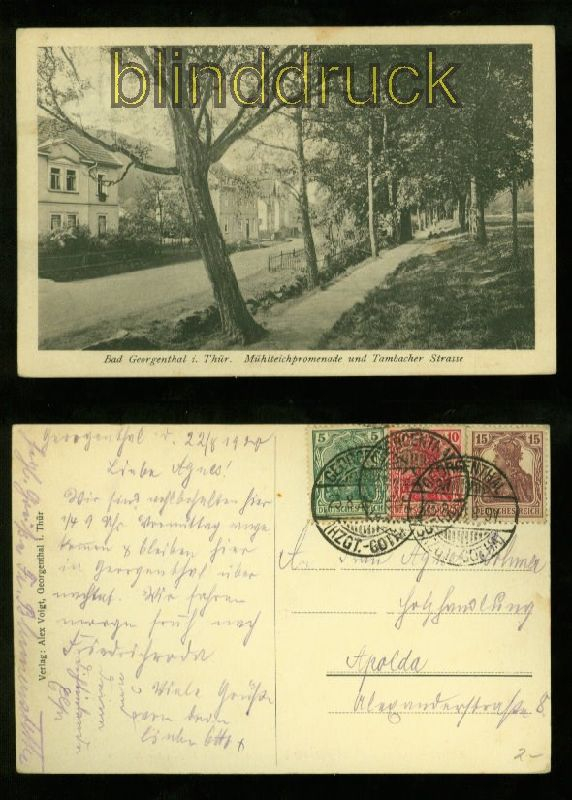 blinddruck
Bad Georgenthal i. Thür. Mühlteichpromenade und Tambacher Strasse
Georgenthal d. 22/8 1920
Liebe Agnes!
Wir sind wohlbehalten hier
1/4 9 Uhr Vormittag ange
kommen & bleiben hier
in Georgenthal über
nachtet. Wir fahren
morgen früh nach
Friedrichroda
Viele Grüße
von dein
lieben
Verlag: Alex Voigt, Georgenthal i. Thür
5 5
DEUTSCHES REICH
10
15 15
DEUTSCHES REICH
GEORGENTHAL
(HZGT. GOTHA)
An Frau
Holzhandlung
Apolda
Alexanderstraße 8
2-